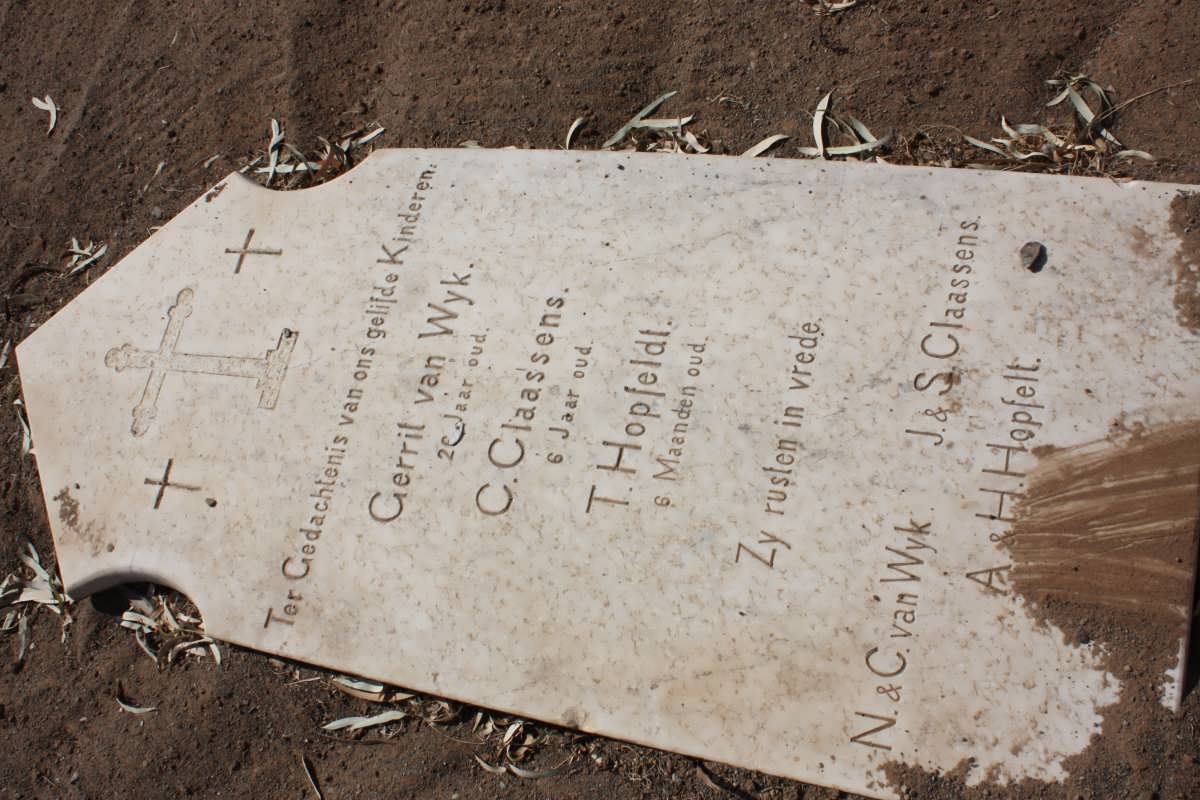 Ter Gedachtenis van ons gelifde Kinderen.
Gerrit van Wyk.
2 Jaar oud.
C. Claassens.
6 Jaar oud.
T. Hopfeldt.
6 Maanden oud.
Zy rusten in vrede.
N & C. van Wyk. J & S. Claassens.
A & H Hopfelt.